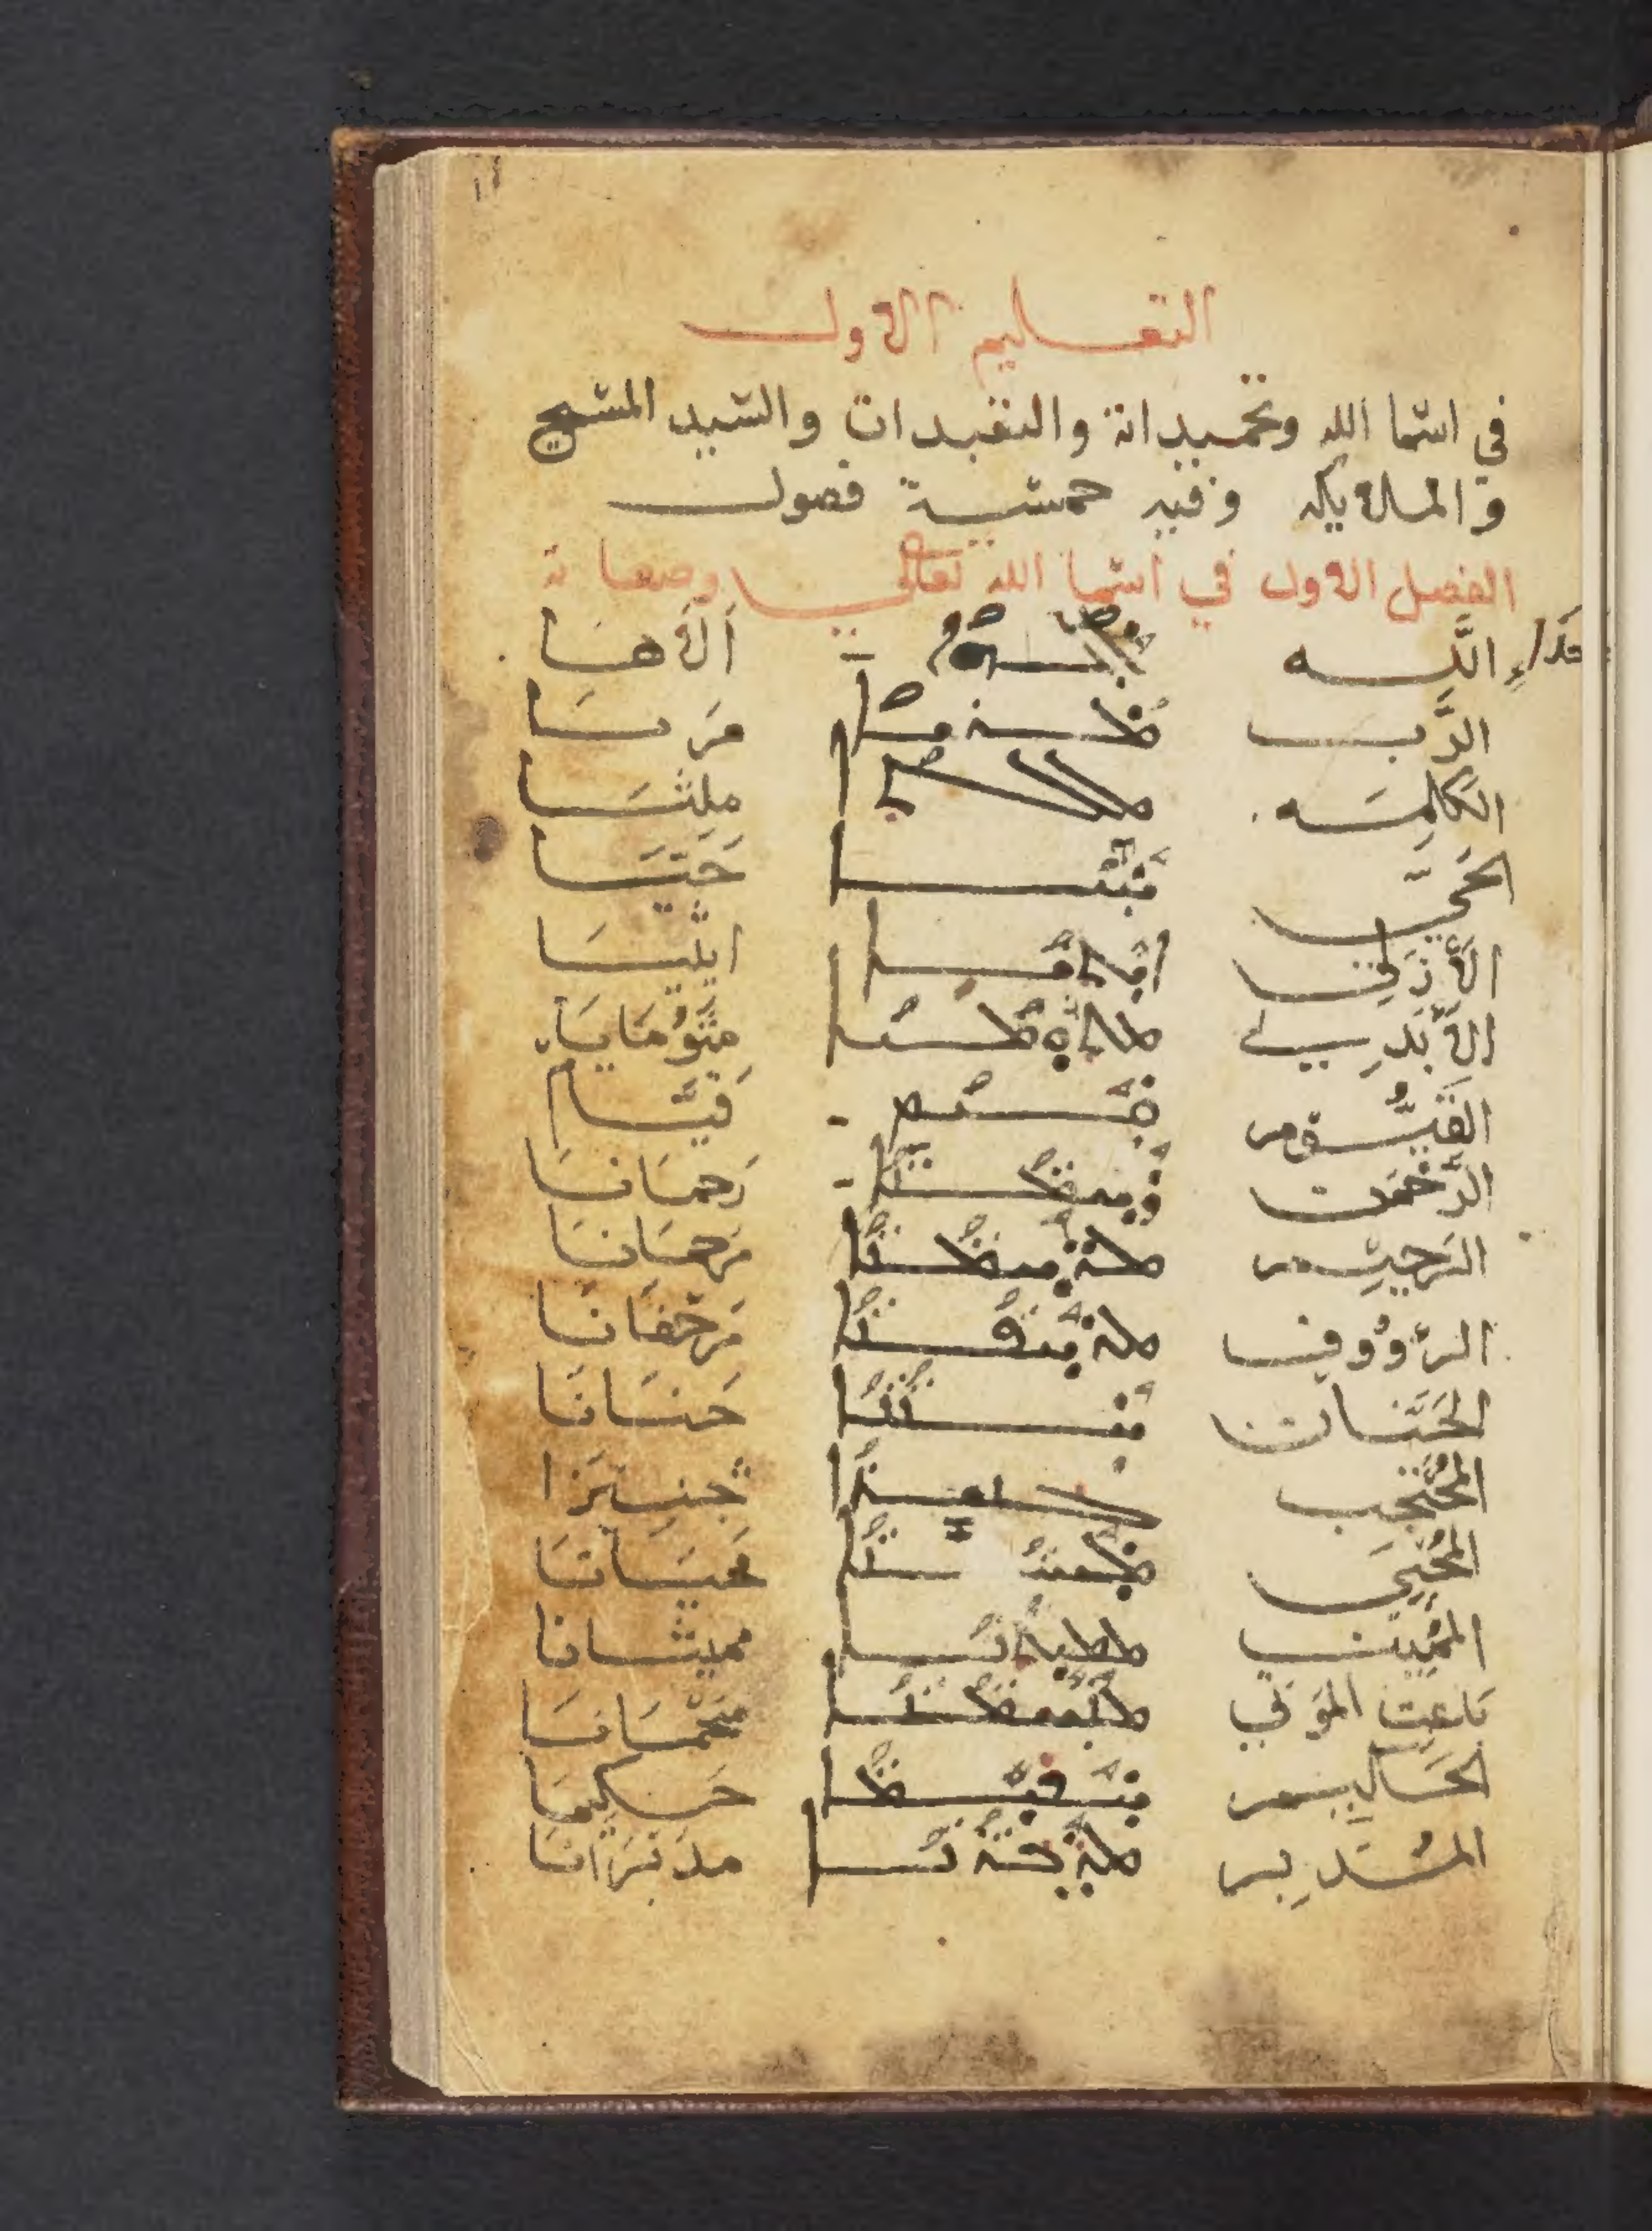 التعليم الاول
في اسما الله وتحميداته والتقيدات والسيد المسيح
والملايكه وفيه خمسة فصول
الفصل الاول في اسما الله تعالي وصفاته
اللّه ܐܠܗܐ اَلَاهَا
الرَّب ܡܪܝܐ مَريَا
الكَلِمَه ܡܠܬܐ مِلِثَا
الحَيّ ܚܝܐ حَيَا
الأَزَلي ܐܝܬܝܐ ايثيَا
الأَبَدي ܡܬܘܡܝܐ مِثَوُمَايَا
القَيُّوم ܩܝܡ قَيَّام
الرَّحمَن ܪܚܡܢܐ رَحمَانَا
الرَحِيم ܡܪܚܡܢܐ مَرحمَانَا
الرؤُوف ܡܪܚܦܢܐ مَرحفَانَا
الحَنَّان ܚܢܢܐ حَنَانَا
المُحتجِب ܓܢܝܙܐ جنِيزا
المُحيِي ܡܚܝܢܐ مَحيَانَا
المُمِيت ܡܡܝܬܢܐ مميثانا
بَاعِث الموَتي ܡܢܚܡܢܐ مَنحمَانَا
الحَكيم ܚܟܝܡܐ حَكِيمَا
المُدَبِر ܡܕܒܪܢܐ مدَبرَانَا